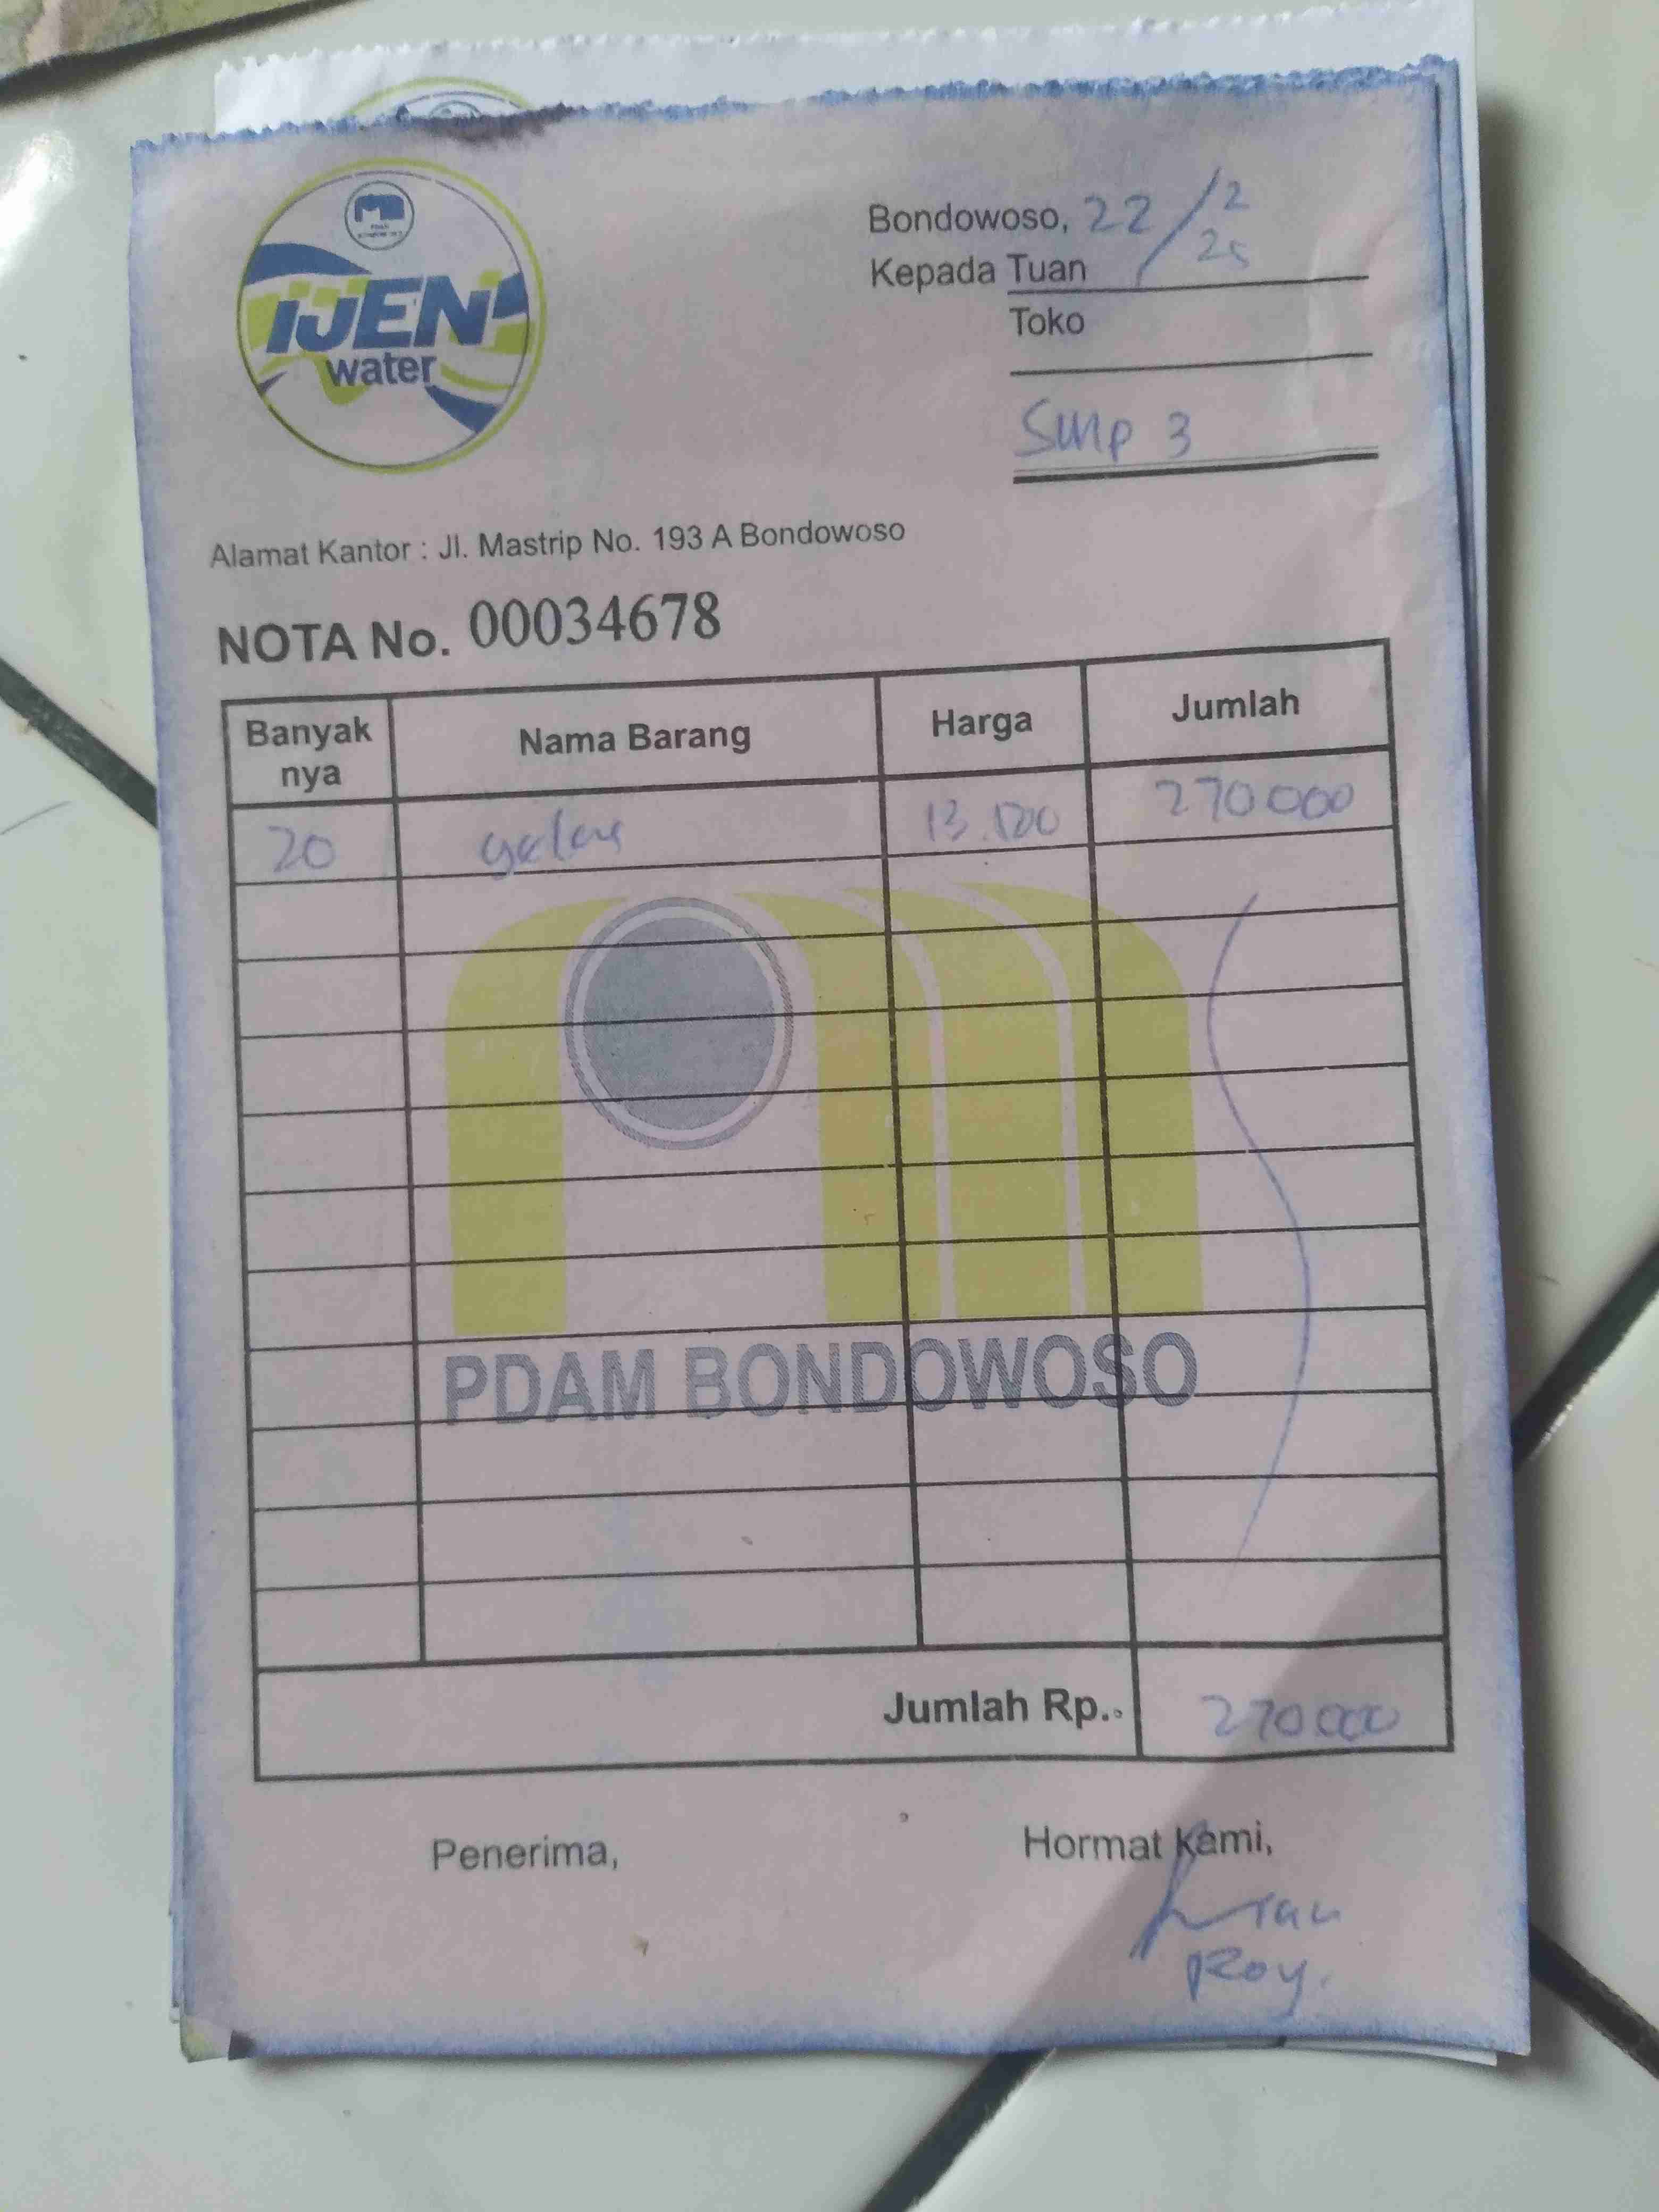 IJEN
water
Bondowoso, 22/2
25
Kepada Tuan
Toko
SMP 3
Alamat Kantor : Jl. Mastrip No. 193 A Bondowoso
NOTA No. 00034678
Banyak nya Nama Barang Harga Jumlah
20 galon 13.500 270000
PDAM BONDOWOSO
Jumlah Rp.. 270000
Penerima, Hormat Kami,
Roy.